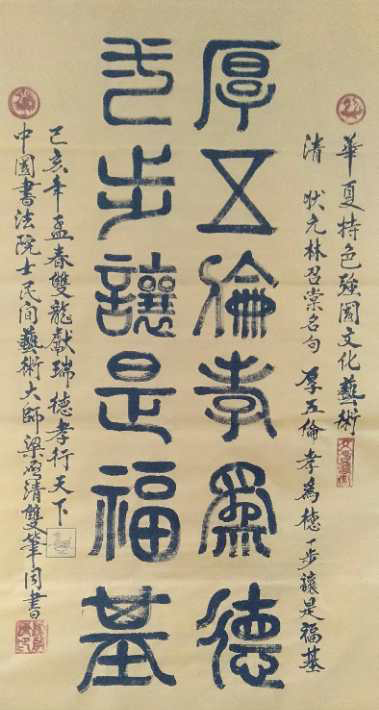 華夏特色强國文化藝術
清 狀元林召棠名句 厚五倫孝為德一步讓是福基
厚五倫孝為德
弌步讓是福基
己亥年孟春雙龍獻瑞德孝行天下
中國書法院士民间藝術大師梁啓清雙筆同書